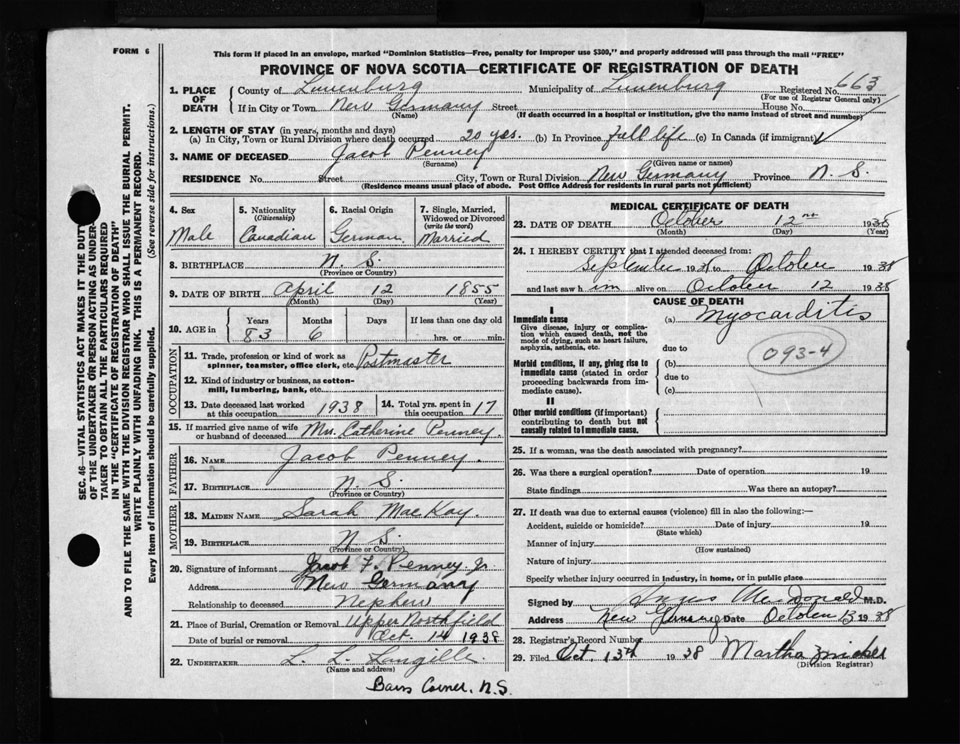 FORM 6
This form if placed in an envelope, marked "Dominion Statistics—Free, penalty for improper use $300," and properly addressed will pass through the mail "FREE"
PROVINCE OF NOVA SCOTIA—CERTIFICATE OF REGISTRATION OF DEATH
1. PLACE OF DEATH
County of Lunenburg Municipality of Lunenburg Registered No. 663
(For use of Registrar General only)
If in City or Town New Germany Street House No.
(Name) (If death occurred in a hospital or institution, give the name instead of street and number)
2. LENGTH OF STAY (in years, months and days)
(a) In City, Town or Rural Division where death occurred 20 yrs. (b) In Province full life (c) In Canada (if immigrant)
3. NAME OF DECEASED Jacob Penney
(Surname) (Given name or names)
RESIDENCE No. Street City, Town or Rural Division New Germany Province N. S.
(Residence means usual place of abode. Post Office Address for residents in rural parts not sufficient)
4. Sex Male
5. Nationality (Citizenship) Canadian
6. Racial Origin German
7. Single, Married, Widowed or Divorced (write the word) Married
8. BIRTHPLACE N. S.
(Province or Country)
9. DATE OF BIRTH April 12 1855
(Month) (Day) (Year)
10. AGE in Years Months Days If less than one day old
83 6 hrs. or min.
OCCUPATION
11. Trade, profession or kind of work as spinner, teamster, office clerk, etc. Postmaster
12. Kind of industry or business, as cotton-mill, lumbering, bank, etc.
13. Date deceased last worked at this occupation 1938
14. Total yrs. spent in this occupation 17
15. If married give name of wife or husband of deceased Mrs. Catherine Penney.
FATHER
16. NAME Jacob Penney.
17. BIRTHPLACE N. S.
(Province or Country)
MOTHER
18. MAIDEN NAME Sarah MacKay.
19. BIRTHPLACE N. S.
(Province or Country)
20. Signature of informant Jacob F. Penney Jr
Address New Germany
Relationship to deceased Nephew
21. Place of Burial, Cremation or Removal Upper Northfield
Date of burial or removal Oct. 14 1938
22. UNDERTAKER L. L. Langille.
(Name and address)
Barss Corner, N.S.
MEDICAL CERTIFICATE OF DEATH
23. DATE OF DEATH October 12 1938
(Month) (Day) (Year)
24. I HEREBY CERTIFY that I attended deceased from:
September 1938 to October 1938
and last saw him alive on October 12 1938
CAUSE OF DEATH
I
Immediate cause (a) Myocarditis
Give disease, injury or complication which caused death, not the mode of dying, such as heart failure, asphyxia, asthenia, etc.
due to
093-4
Morbid conditions, if any, giving rise to immediate cause (stated in order proceeding backwards from immediate cause).
(b)
due to
(c)
II
Other morbid conditions (if important) contributing to death but not causally related to immediate cause.
25. If a woman, was the death associated with pregnancy?
26. Was there a surgical operation? Date of operation 19
State findings Was there an autopsy?
27. If death was due to external causes (violence) fill in also the following:—
Accident, suicide or homicide? Date of injury 19
(State which)
Manner of injury
(How sustained)
Nature of injury
Specify whether injury occurred in industry, in home, or in public place
Signed by Angus MacDonald M.D.
Address New Germany Date October 13 1938
28. Registrar's Record Number
29. Filed Oct. 13th 1938 Martha
(Division Registrar)
SEC. 46—VITAL STATISTICS ACT MAKES IT THE DUTY
OF THE UNDERTAKER OR PERSON ACTING AS UNDER-
TAKER TO OBTAIN ALL THE PARTICULARS REQUIRED
IN THE "CERTIFICATE OF REGISTRATION OF DEATH"
AND TO FILE THE SAME WITH THE DIVISION REGISTRAR WHO SHALL ISSUE THE BURIAL PERMIT.
WRITE PLAINLY WITH UNFADING INK. THIS IS A PERMANENT RECORD.
Every item of information should be carefully supplied. (See reverse side for instructions.)